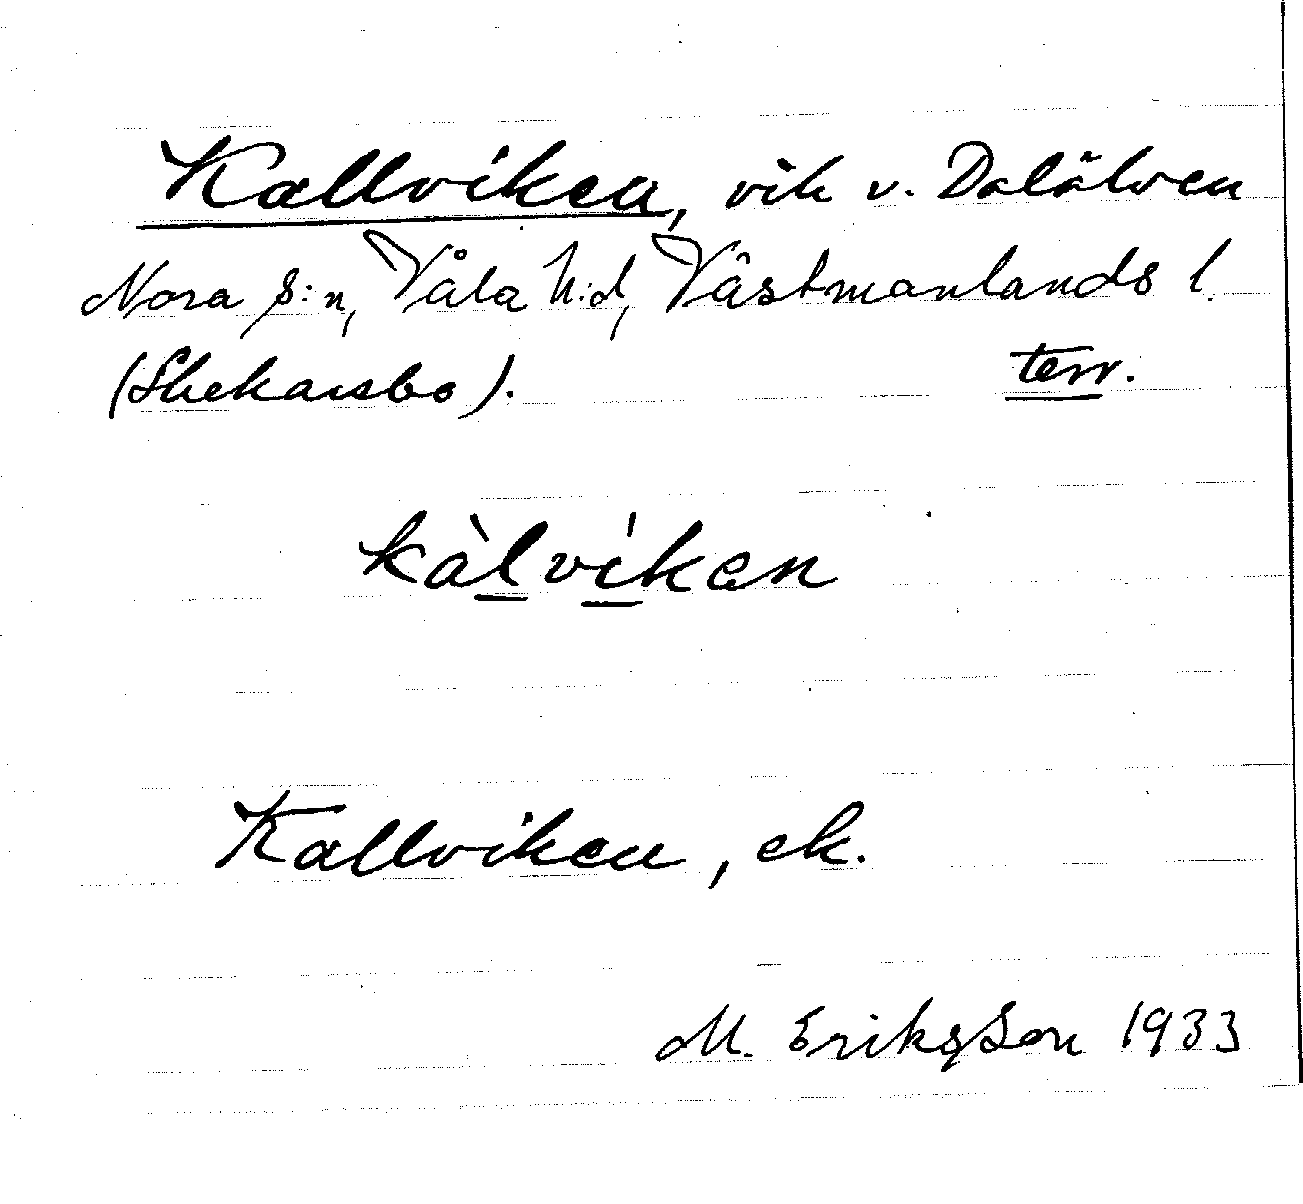 Kallviken, vik v. Dalälven
Nora s:n, Våla h:d, Västmanlands l.
(Skekarsbo). terr.
kàlvíken
Kallviken, ek.
M. Eriksson 1933